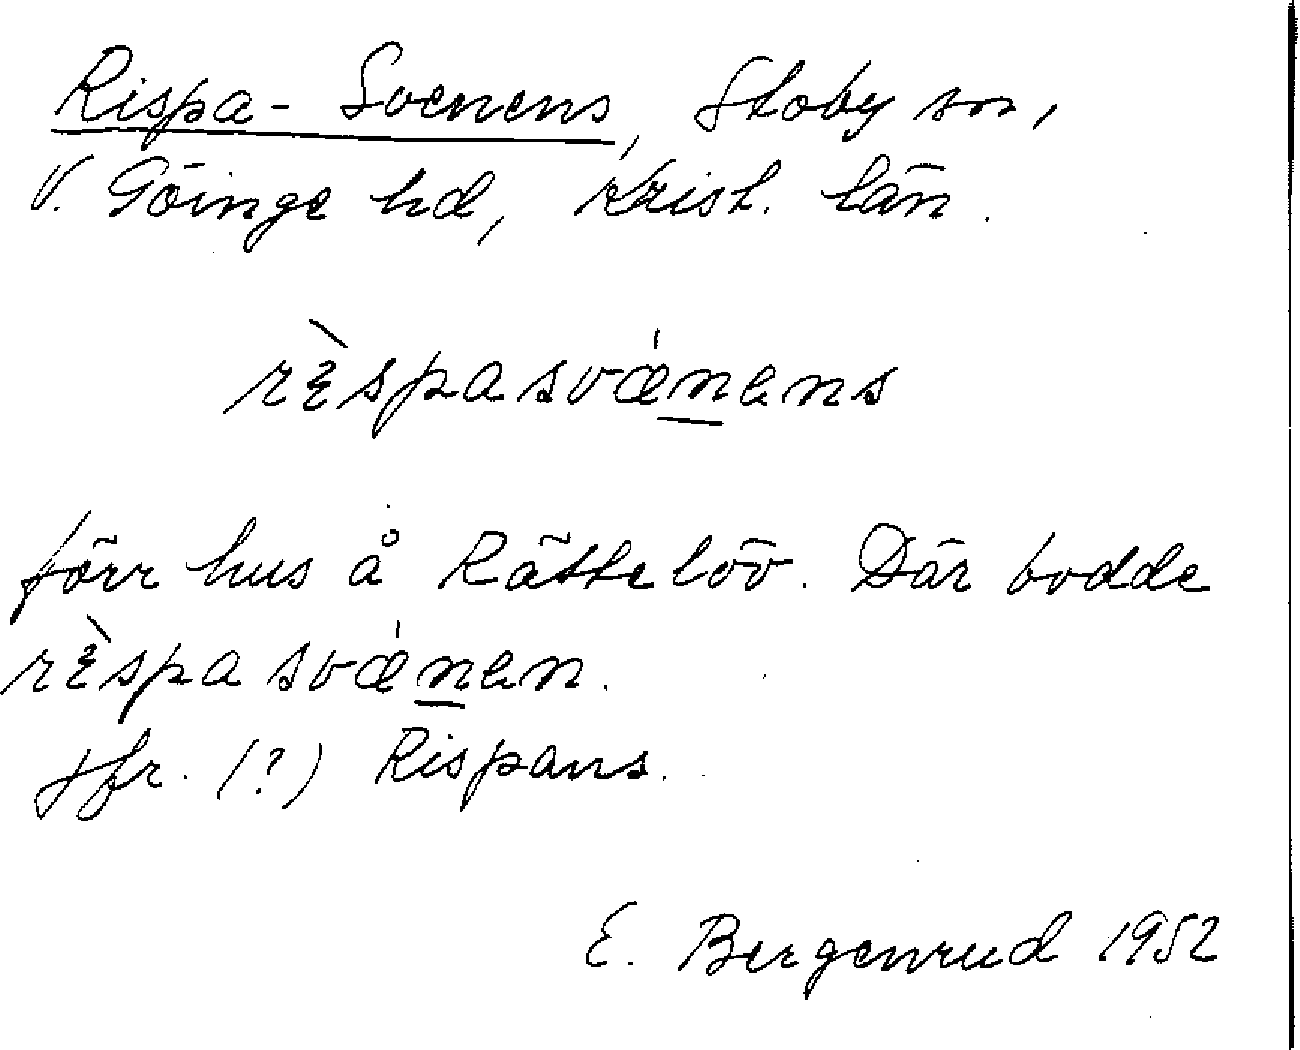 Rispa-Svenens, Stoby sn,
V. Göinge hd, Krist. län.
rèspasvænens
förr hus å Rättelöv. Där bodde
rèspa svænen.
Jfr. (?) Rispans.
E. Bergenrud 1952